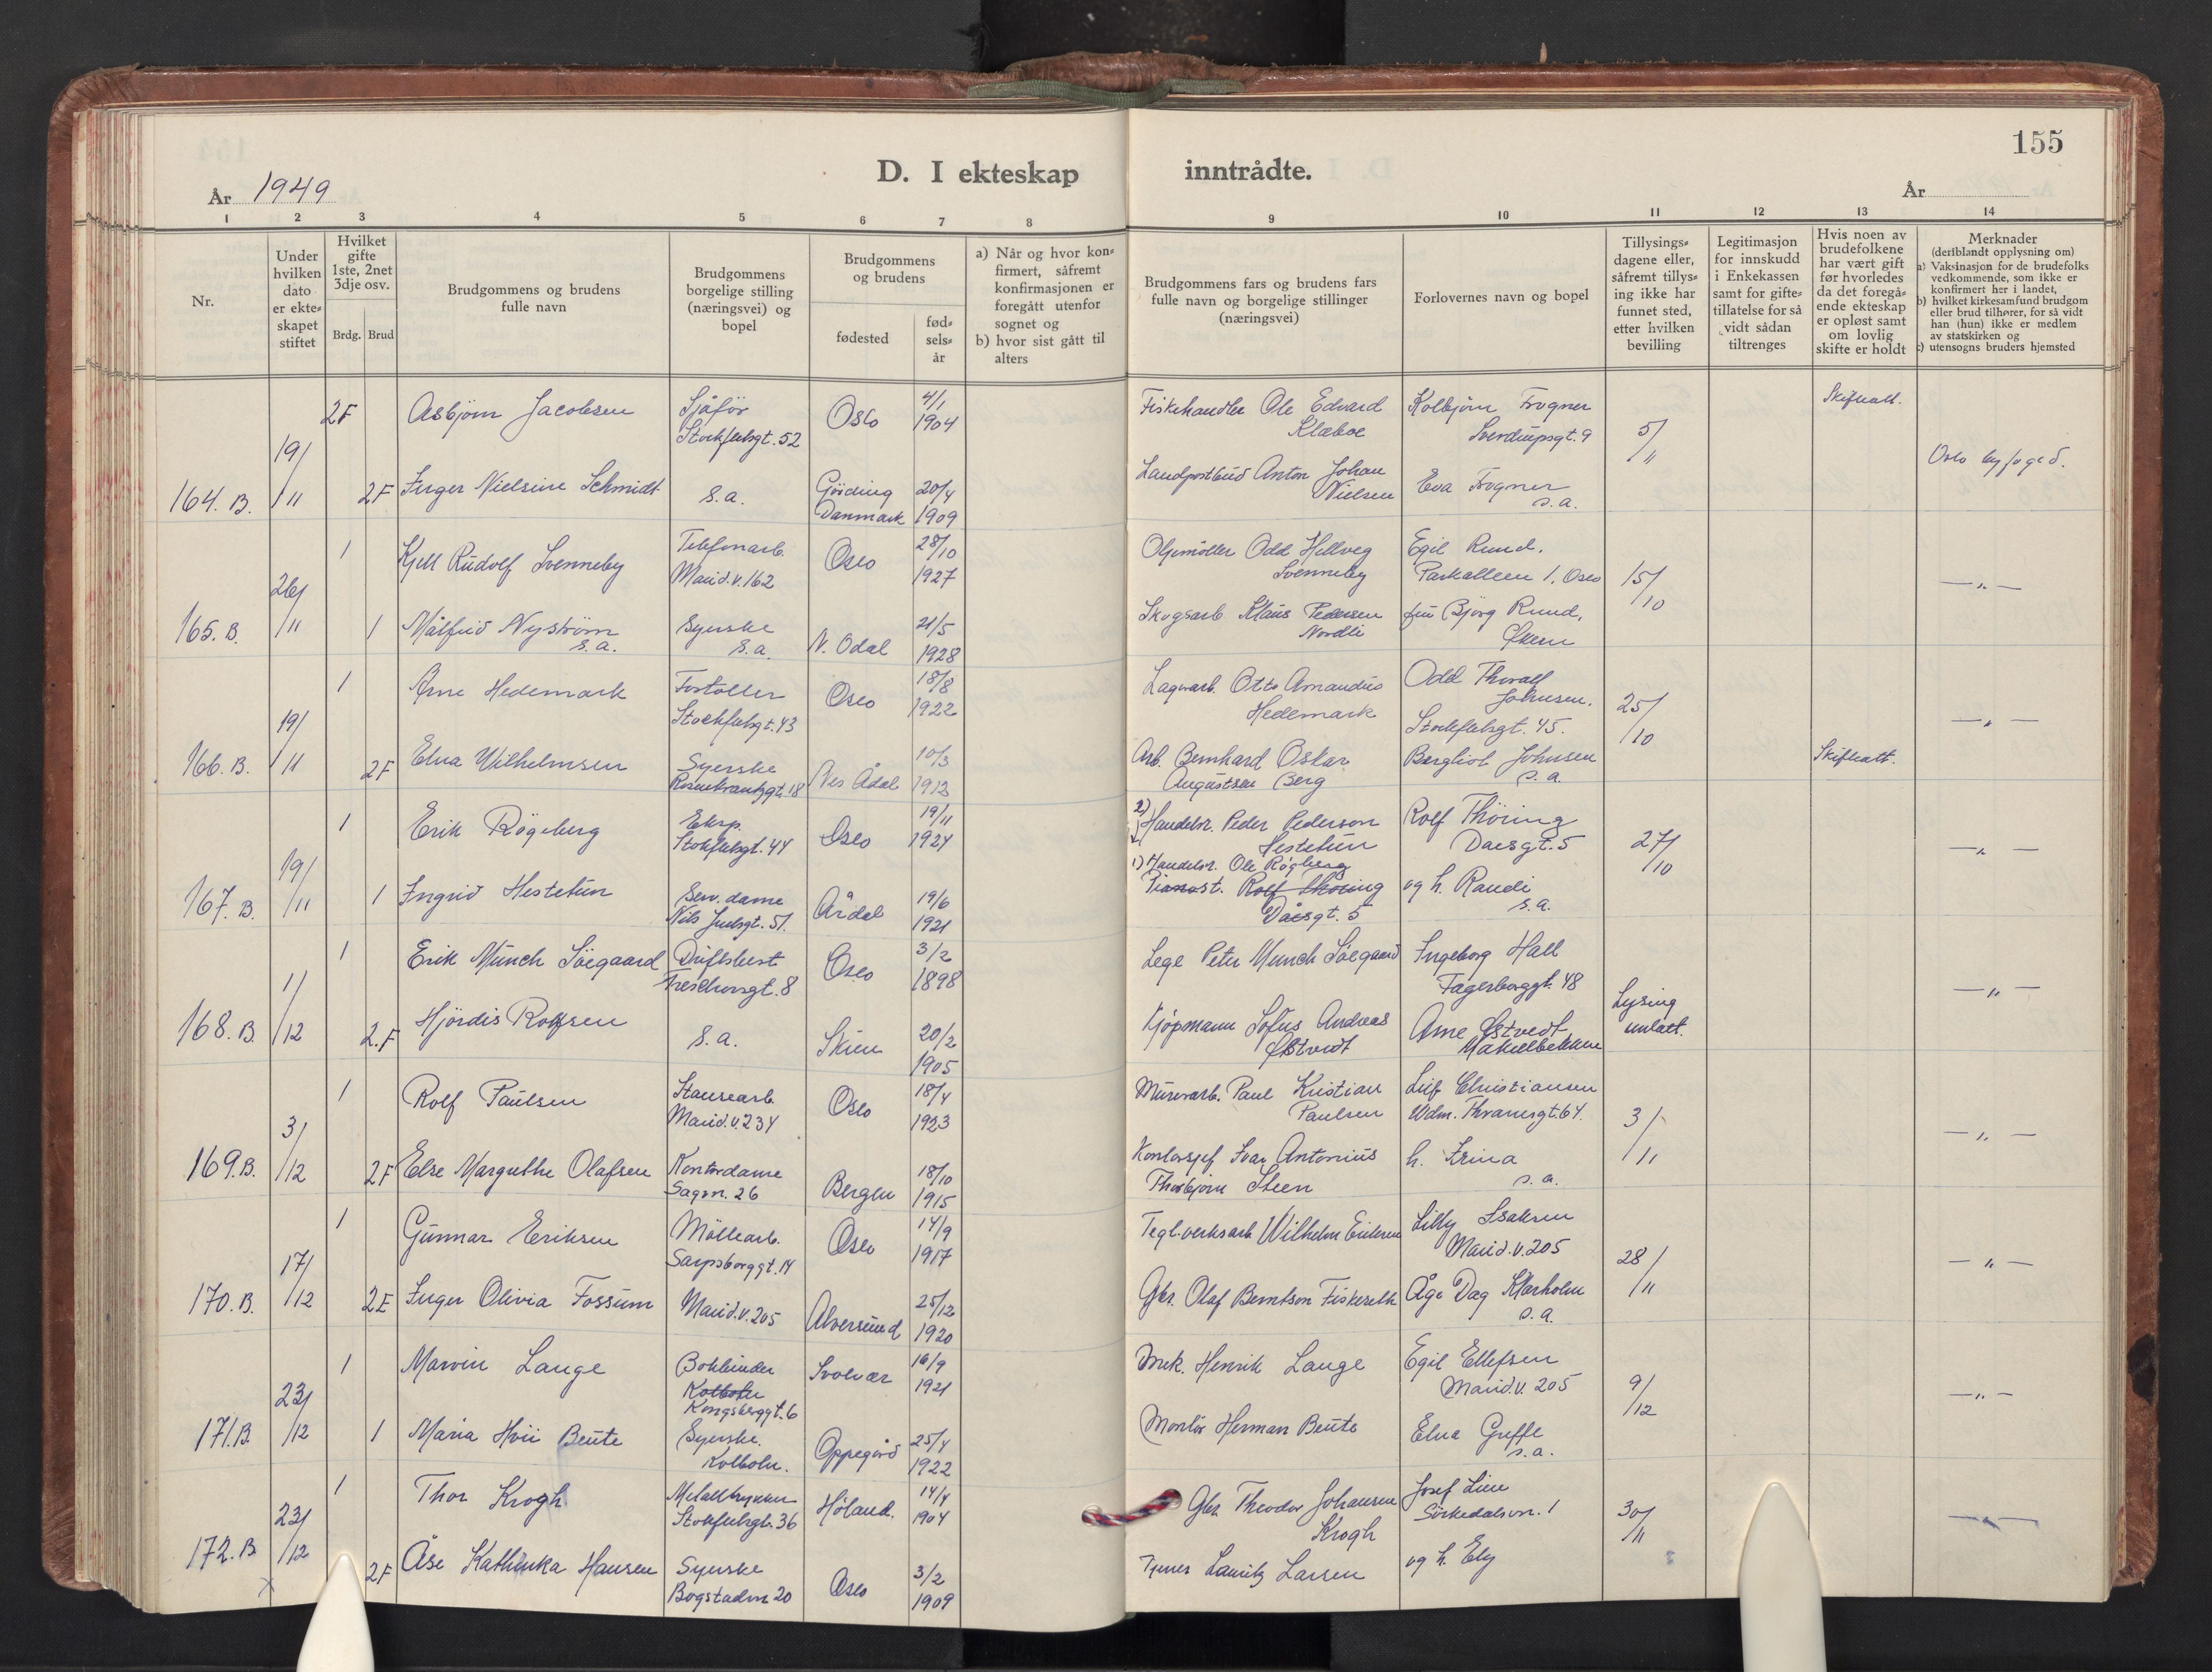 155
D. I ekteskap inntrådte.
År 1949
År
1 2 3 4 5 6 7 8 9 10 11 12 13 14
Nr.
Under hvilken dato er ekte= skapet stiftet
Hvilket gifte 1ste, 2net 3dje osv.
Brdg. Brud
Brudgommens og brudens fulle navn
Brudgommens borgelige stilling (næringsvei) og bopel
Brudgommens og brudens
fødested
fød= sels= år
a) Når og hvor kon= firmert, såfremt konfirmasjonen er foregått utenfor sognet og
b) hvor sist gått til alters
Brudgommens fars og brudens fars fulle navn og borgelige stillinger (næringsvei)
Forlovernes navn og bopel
Tillysings= dagene eller, såfremt tillys= ing ikke har funnet sted, etter hvilken bevilling
Legitimasjon for innskudd i Enkekassen samt for gifte= tillatelse for så vidt sådan tiltrenges
Hvis noen av brudefolkene har vært gift før hvorledes da det foregå= ende ekteskap er opløst samt om lovlig skifte er holdt
Merknader
(deriblandt opplysning om)
a) Vaksinasjon for de brudefolks vedkommende, som ikke er konfirmert her i landet,
b) hvilket kirkesamfund brudgom eller brud tilhører, for så vidt han (hun) ikke er medlem av statskirken og
c) utensogns bruders hjemsted
164. B. 19/11
2F Asbjørn Jacobsen Sjåför Oslo 4/1 1904 Fiskehandler Ole Edvard Klæboe Kolbjørn Frogner Sverdrupsgt. 9 5/11 Skifteatt.
Oslo byfoged.
2F Inger Nielsine Schmidt s.a. Görding Danmark 20/4 1909 Landpostbud Anton Johan Nielsen Eva Frogner s.a.
165. B. 26/11
1 Kjell Rudolf Svenneby Telefonarb. Marid.v. 162 Oslo 28/10 1927 Odd Hellveg Svenneby Egil Ruud. Parkalleen 1, Oslo 15/10 — " —
1 Målfrid Nyström s.a. Syerske s.a. N. Odal 21/5 1928 Skogsarb. Klaus Pedersen Nordli fru Bjørg Ruud, Økern
166. B. 19/11
1 Arne Hedemark Oslo 18/8 1922 Lagerarb. Otto Amandus Hedemark Odd Thorvall Johnsen. 45. 25/10 — " —
2F Elna Wilhelmsen Syerske Rosenkrantzgt. 18 Nes Ådal 10/3 1913 Arb. Bernhard Oskar Augustsen Berg Bergliot Johnsen s.a. Skifteatt.
167. B. 19/11
1 Erik Rögeberg Eksp. Oslo 19/11 1924 2) Handelsr. Peder Pederson Hestetun Rolf Thöring Daasgt. 5 27/10 — " —
1) Handelsr. Ole Rögeberg
1 Ingrid Hestetun Serv. dame Nils Juelsgt. 51. Årdal 19/6 1921 Rolf Thöring Daasgt. 5 og h. Randi s.a.
168. B. 1/12
1 Erik Munch Söegaard Driftsbest. Treschowsgt. 8 Oslo 3/2 1898 Lege Peter Munch Söegaard Ingeborg Hall Fagerborggt. 48 Lysing unlatt. — " —
2.F Hjördis Rolfsen s.a. Skien 20/2 1905 Kjöpmann Sofus Andreas Østvedt Arne Østvedt Makrellbekken
169. B. 3/12
1 Rolf Paulsen Stansearb. Marid.v. 234 Oslo 18/4 1923 Murerarb. Paul Kristian Paulsen Leif Christiansen Wdm. Thranesgt. 64. 3/11 — " —
2F Else Margrethe Olafsen Kontordame Sagvn. 26 Bergen 18/10 1915 Kontorsjef Ivar Antonius Thorbjörn Steen h. Irina s.a.
170. B. 17/12
1 Gunnar Eriksen Möllearb. Sarpsborggt. 14 Oslo 14/9 1917 Teglverksarb. Wilhelm Eriksen Lilly Isaksen Marid.v. 205 28/11 — " —
2E Inger Olivia Fossum Marid.v. 205 Alversund 25/12 1920 Gbr. Olaf Berntson Åge Dag Klarholm s.a.
171. B. 23/12
1 Marvin Lange Bokbinder Kolbotn Kongsberggt. 6 Svolvær 16/9 1921 Mek. Henrik Lange Egil Ellefsen Marid.v. 205 9/12 — " —
1 Maria Hvii Beute Syerske. Kolbotn. Oppegård 25/4 1922 Montör Herman Beute Elna Greffe s.a.
172. B. 23/12
1 Thor Krogh Metalltrykker Höland. 14/4 1904 Gbr. Theodor Johansen Krogh Josef Lien Sörkedalsvn. 1 30/11 — " —
2F Åse Kathinka Hansen Syerske Bogstadvn 20 Oslo 3/2 1909 Lauritz Larsen og h. Ely